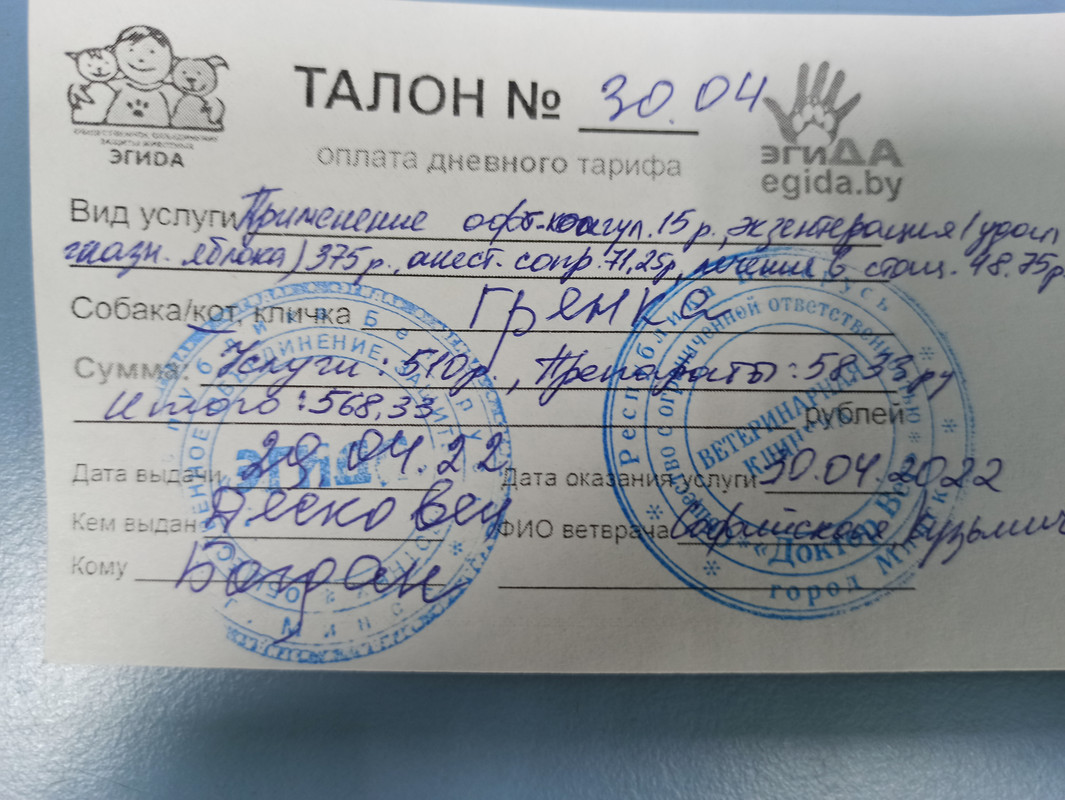 ОБЩЕСТВЕННОЕ ОБЪЕДИНЕНИЕ
ЗАЩИТЫ ЖИВОТНЫХ
ЭГИДА
ТАЛОН № 30.04
эгиДА
egida.by
оплата дневного тарифа
Вид услуги Применение офт-коагул. 15 р., экзентерация (удал
глазн. яблока) 375 р., анест. сопр. 71,25р, лечение в стац. 48.75р.
Собака/кот, кличка Гренка
Сумма: Услуги: 510р., Препараты: 58,33 ру
Итого: 568,33 рублей
Дата выдачи 29.04.22 Дата оказания услуги 30.04.2022
Кем выдан Песковец ФИО ветврача Кузьмич
Кому Богдан
Республика Беларусь
с ограниченной ответственностью
ВЕТЕРИНАРНАЯ
КЛИНИКА
«Доктор Вет»
город Минск
ОБЪЕДИНЕНИЕ ЗАЩИТЫ
ЭГИДА
г. Минск